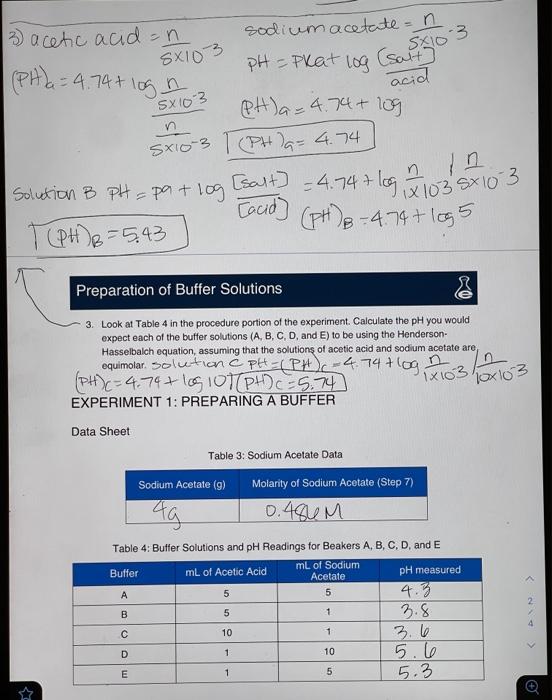 3) acetic acid = n / 5x10-3
sodium acetate = n / 5x10-3
pH = PKa + log [salt] / acid
(PH)a = 4.74 + log n / 5x10-3 / n / 5x10-3
(PH)a = 4.74 + log
(PH)a = 4.74
Solution B PH = pa + log [salt] / [acid] = 4.74 + log n / 1x10-3 / n / 5x10-3
(PH)B = 4.74 + log 5
(PH)B = 5.43
Preparation of Buffer Solutions
3. Look at Table 4 in the procedure portion of the experiment. Calculate the pH you would
expect each of the buffer solutions (A, B, C, D, and E) to be using the Henderson-
Hasselbalch equation, assuming that the solutions of acetic acid and sodium acetate are
equimolar. solution C PH = (PH)c = 4.74 + log n / 1x10-3 / n / 10x10-3
(PH)c = 4.74 + log 10 (PH)c = 5.74
EXPERIMENT 1: PREPARING A BUFFER
Data Sheet
Table 3: Sodium Acetate Data
Sodium Acetate (g) Molarity of Sodium Acetate (Step 7)
4g 0.486M
Table 4: Buffer Solutions and pH Readings for Beakers A, B, C, D, and E
Buffer mL of Acetic Acid mL of Sodium Acetate pH measured
A 5 5 4.3
B 5 1 3.8
C 10 1 3.6
D 1 10 5.6
E 1 5 5.3
2 / 4